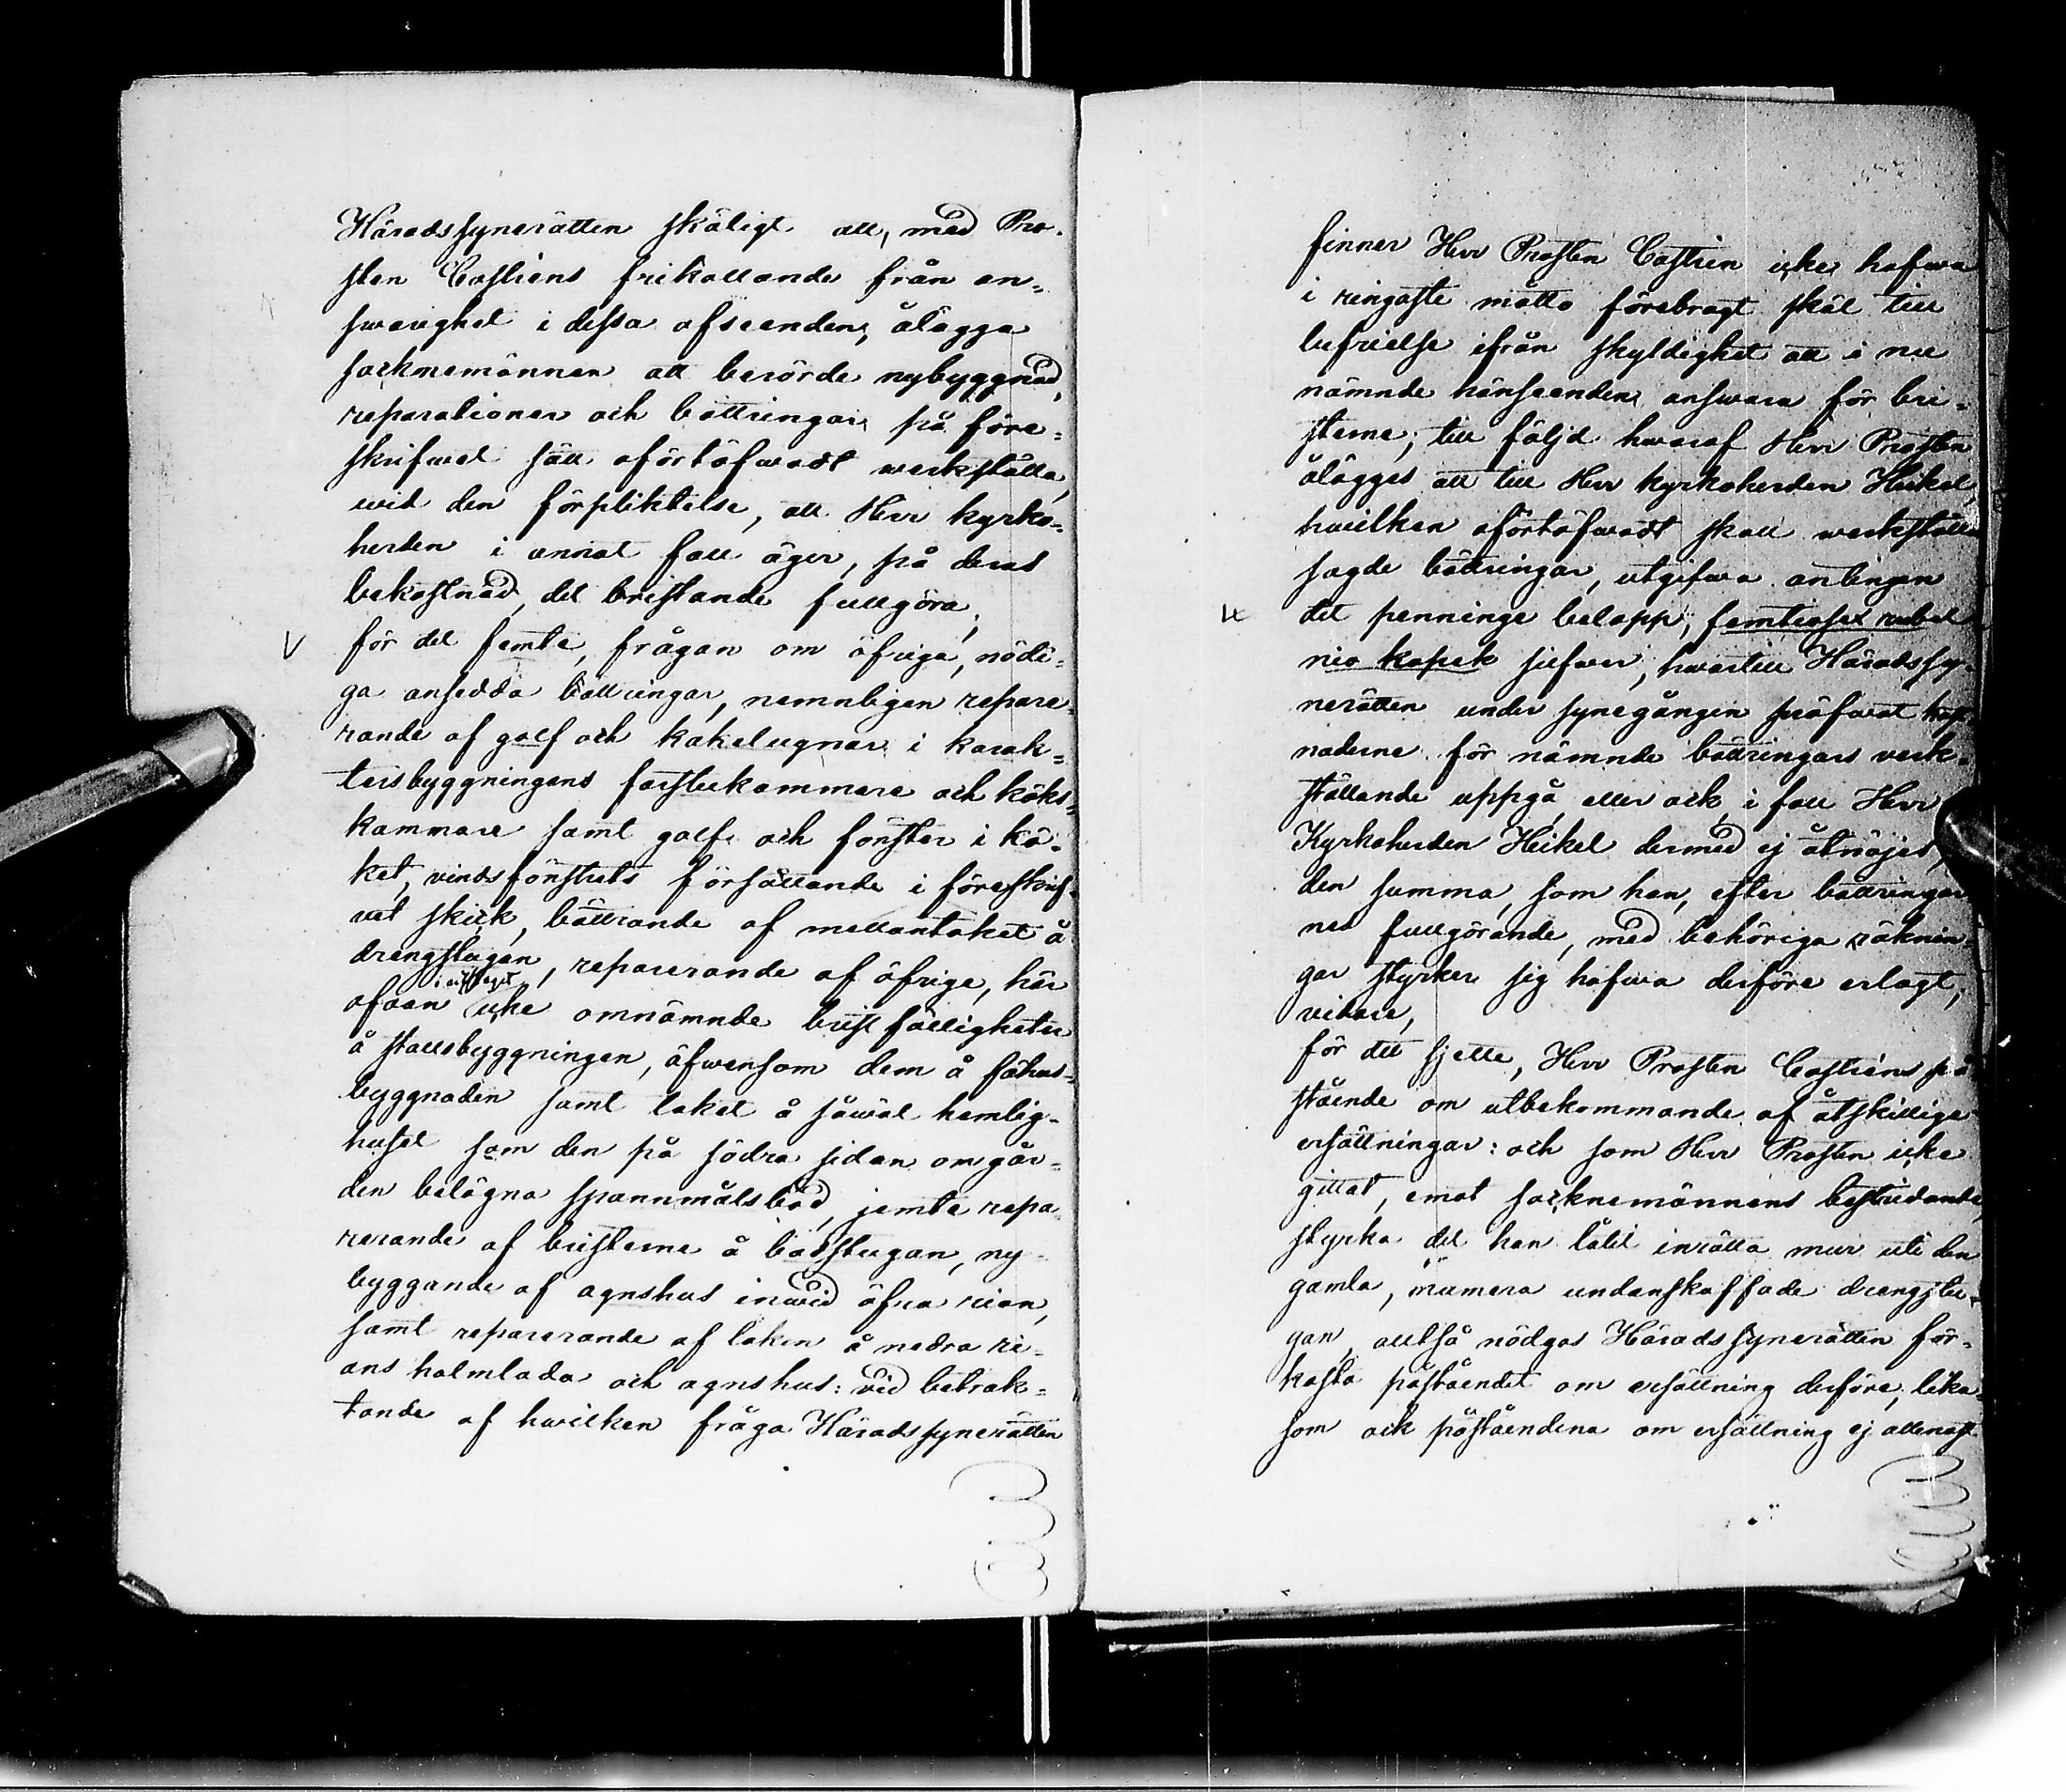 Häradssynerätten skäligt att, med Pro-
sten Castréns frikallande från an-
svarighet i dessa afseenden, ålägga
socknemännen att berörde nybyggnad,
reparationer och bättringar på före-
skrifwet sätt ofördröfwadt werkställa,
wid den förpliktelse, att Herr Kyrko-
herden i annat fall äger, på deras
bekostnad, det bristande fullgöra;
V för det femte, frågan om öfriga, nödi-
ga ansedda bättringar, nemnligen repare-
rande af golf och kakelugnar i karak-
tersbyggningens farstukammare och köks-
kammare samt golf och fönster i kö-
ket, vindsfönstrets försättande i föreskrif-
vet skick, bättrande af mellantaket å
drengstugan, reparerande af öfrige, här
ofvan icke omnämnde bristfälligheter
å stallsbyggningen, äfwensom dem å fähus-
byggnaden samt taket å såwäl hemlig-
huset som den på södra sidan om går-
den belägna spannmålsbod, jemte repa-
rerande af bristerne å badstugan, ny-
byggande af agnshus inwid öfra rian,
samt reparerande af taken å nedra ri-
ans halmlada och agnshus: vid betrak-
tande af hwilken fråga Häradssynerätten
finner Herr Prosten Castrén icke hafwa
i ringaste måtto förebragt skäl till
befrielse ifrån skyldighet att i nu
nämnde hänseenden answara för bri-
sterne; till följd hwaraf Herr Prosten
ålägges att till Herr Kyrkoherden Heikel,
hwilken ofördröfwadt skall werkställa
sagde bättringar, utgifwa antingen
det penninge belopp, femtiosex rubel
nio kopek silfwer, hwartill Häradssy-
nerätten under synegången pröfwat kost-
naderne för nämnde bättringars verk-
ställande uppgå, eller ock, i fall Herr
Kyrkoherden Heikel dermed ej åtnöjes,
den summa, som han, efter bättringar-
nes fullgörande, med behöriga räknin-
gar styrker sig hafwa derföre erlagt;
vidare,
för det sjette, Herr Prosten Castréns på-
stående om utbekommande af åtskillige
ersättningar: och som Herr Prosten icke
gittat, emot socknemännens bestridande,
styrka det han låtit inrätta mur uti den
gamla, numera undanskaffade drengstu-
gan, alltså nödgas Häradssynerätten för-
kasta påståendet om ersättning derföre, lika
som ock påståendena om ersättning ej allenast